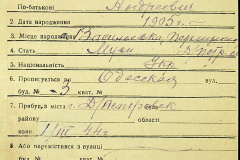 По-батькові Андреевич
2. Дата народження 1905 г.
3. Місце народження Васильевка,
4. Стать Муж
5. Національність Укр
6. Прописується по Одесской
буд. № 3 кват. №
7. Прибув з міста г. Д/Петровск
району області
коли 1/III 44 г.
8. Або перемістився з вулиці
буд. № кват. №